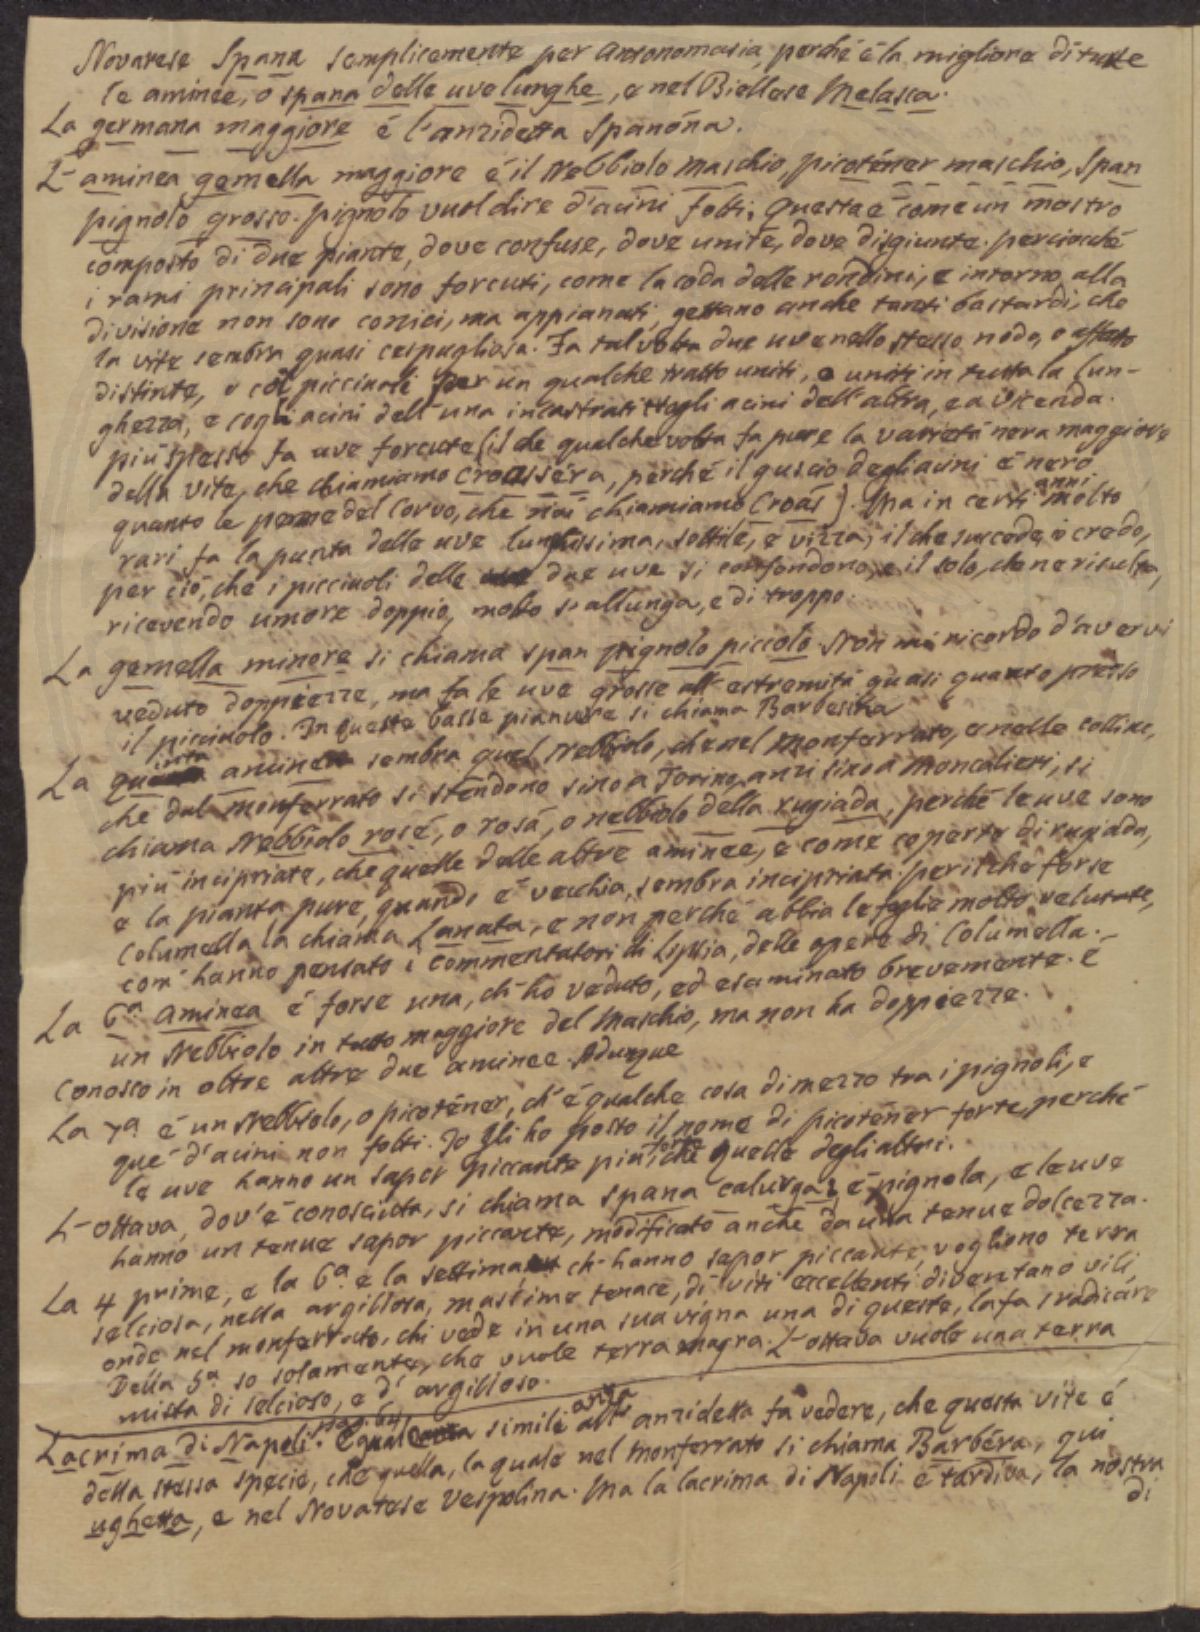 Novarese Spana semplicemente per antonomasia, perché è la migliore di tutte
le aminee, o spana delle uve lunghe, e nel Biellese Melasca.
La germana maggiore é l'anzidetta Spanóna.
L'aminea gemella maggiore é il Nebbiolo maschio, picoténer maschio, Span
pignolo grosso. pignolo vuol dire d'acini folti. Questa é come un mostro
composto di due piante, dove confuse, dove unite, dove disgiunte. perciocché
i rami principali sono forcuti, come la coda delle rondini, e intorno alla
divisione non sono conici, ma appianati, gettano anche tanti bastardi, che
la vite sembra quasi cespugliosa. Fa talvolta due uve nello stesso nodo, o affatto
distinte, o coi picciuoli per un qualche tratto uniti, o uniti in tutta la lun-
ghezza, e cogli acini dell'una incastrati tragli acini dell'altra, e a vicenda.
più spesso fa uve forcute (il che qualche volta fa pure la varietà nera maggiore
della vite, che chiamiamo Croasséra, perché il guscio degli acini é nero
quanto le penne del corvo, che noi chiamiamo Croás). Ma in certi anni molto
rari fa la punta delle uve lunghissima, sottile, e vizza, il che succede, io credo,
per ció, che i picciuoli delle due uve si confondono, e il solo, che ne risulta,
ricevendo umore doppio, molto s'allunga, e di troppo.
La gemella minore si chiama span pignolo piccolo. Non mi ricordo d'avervi
veduto doppiezze, ma fa le uve grosse all'estremitá quasi quanto presso
il picciuolo. In queste basse pianure si chiama Barbesina
La quinta aminea sembra quel Nebbiolo, che nel Monferrato, e nelle colline,
che dal Monferrato si stendono sino a Torino, anzi sino a Moncalieri, si
chiama Nebbiolo rosé, o rosá, o nebbiolo della rugiada, perché le uve sono
più incipriate, che quelle delle altre aminee, e come coperte di rugiada,
e la pianta pure, quando é vecchia, sembra incipriata. perilche forse
Columella la chiama Lanata, e non perché abbia le foglie molto velutate,
com' hanno pensato i commentatori di Lipsia, delle opere di Columella.
La 6.a aminea é forse una, ch' ho veduto, ed esaminato brevemente. é
un Nebbiolo in tutto maggiore del Maschio, ma non ha doppiezze.
Conosco in oltre altre due aminee. Adunque
La 7.a é un Nebbiolo, o picoténer, ch' é qualche cosa di mezzo tra i pignoli, e
que' d'acini non folti. Io gli ho posto il nome di picoténer forte, perché
le uve hanno un sapor piccante più forte, che quello degli altri.
L'ottava, dov'é conosciuta, si chiama spana caluga; é pignola, e le uve
hanno un tenue sapor piccante, modificato anche da una tenue dolcezza.
La 4 prime, e la 6.a e la settima, ch' hanno sapor piccante, vogliono terra
selciosa, nella argillosa, massime tenace, di viti eccellenti diventano vili,
onde nel monferrato, chi vede in una sua vigna una di queste, la fa sradicare
Della 5.a so solamente, che vuole terra magra. L'ottava vuole una terra
mista di selcioso, e d' argilloso.
Lacrima di Napoli. pag. 64 simile all' anzidetta fa vedere, che questa vite é
della stessa specie, che quella, la quale nel Monferrato si chiama Barbéra, qui
ughetta, e nel Novarese Vespolina. Ma la lacrima di Napoli é tardiva, la nostra
di